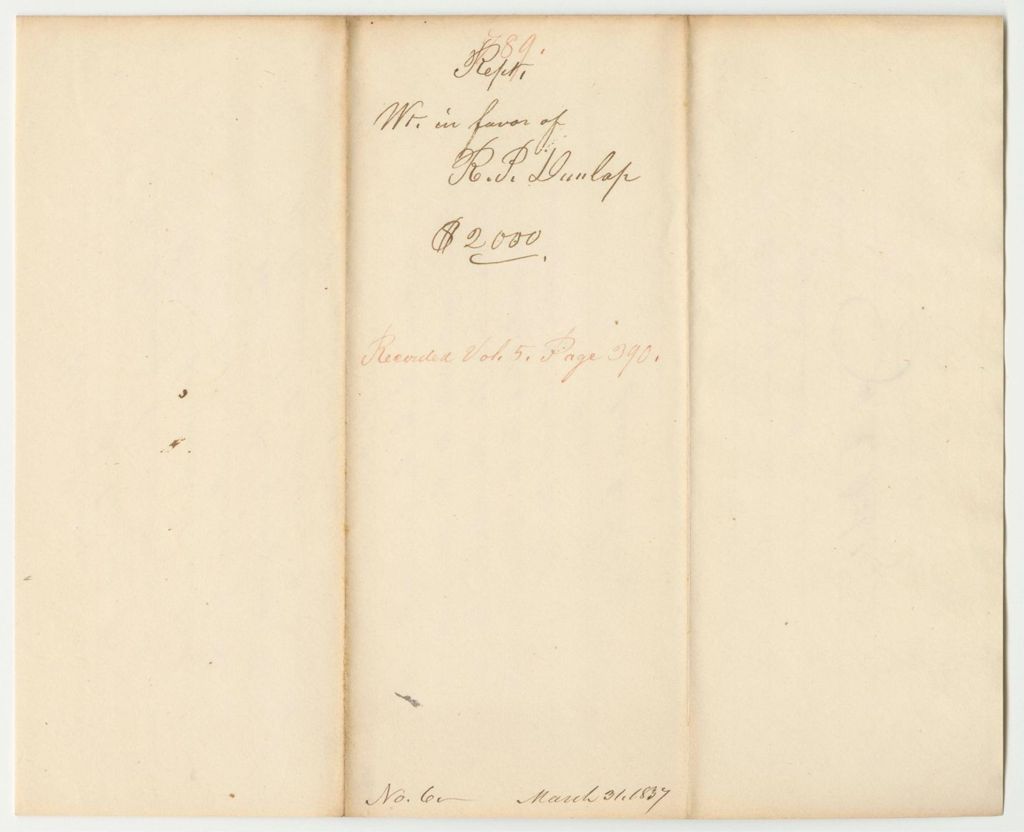 789.
Rept.
Wt. in favor of
R. P. Dunlap
$2000.
Recorded Vol. 5. Page 390.
No. 6
March 31, 1837